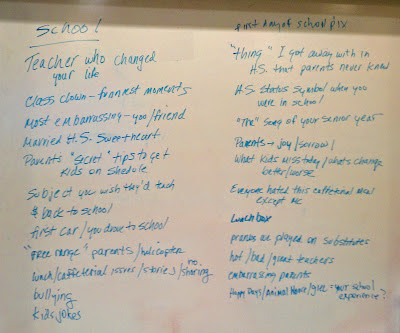 School
Teacher who changed
your life
Class clown - funniest moments
Most embarrassing - you/friend
Married H.S. Sweetheart
Parents "secret" tips to get
kids on Shedule
Subject you wish they'd teach
$ back to school
first car / you drove to school
"free range" parents / helicopter
lunch/cafeteria issues/stories/no sharing
bullying
kids jokes
first day of school pix
"thing" I got away with in
H.S. that parents never knew
H.S. Status Symbol when you
were in school
"The" song of your senior year
Parents - joy/sorrow/
What kids miss today/whats change
better/worse
Everyone hated this cafeteria meal
except me
Lunchbox
pranks we played on substitutes
hot/bad/great teachers
embarrassing parents
Happy Days/Animal House/glee = your school
experience?